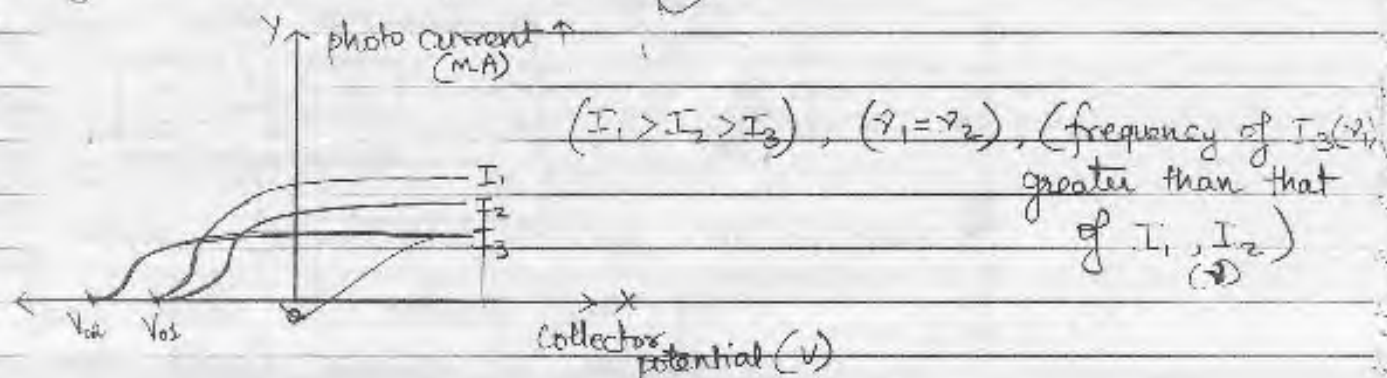 Y photo current ↑
(mA)
(I₁ > I₂ > I₃), (ν₁=ν₂), (frequency of I₃(ν₁)
greater than that
of I₁, I₂)
(ν)
I₁
I₂
I₃
V₀₂ V₀₁ O X
Collector
potential (V)